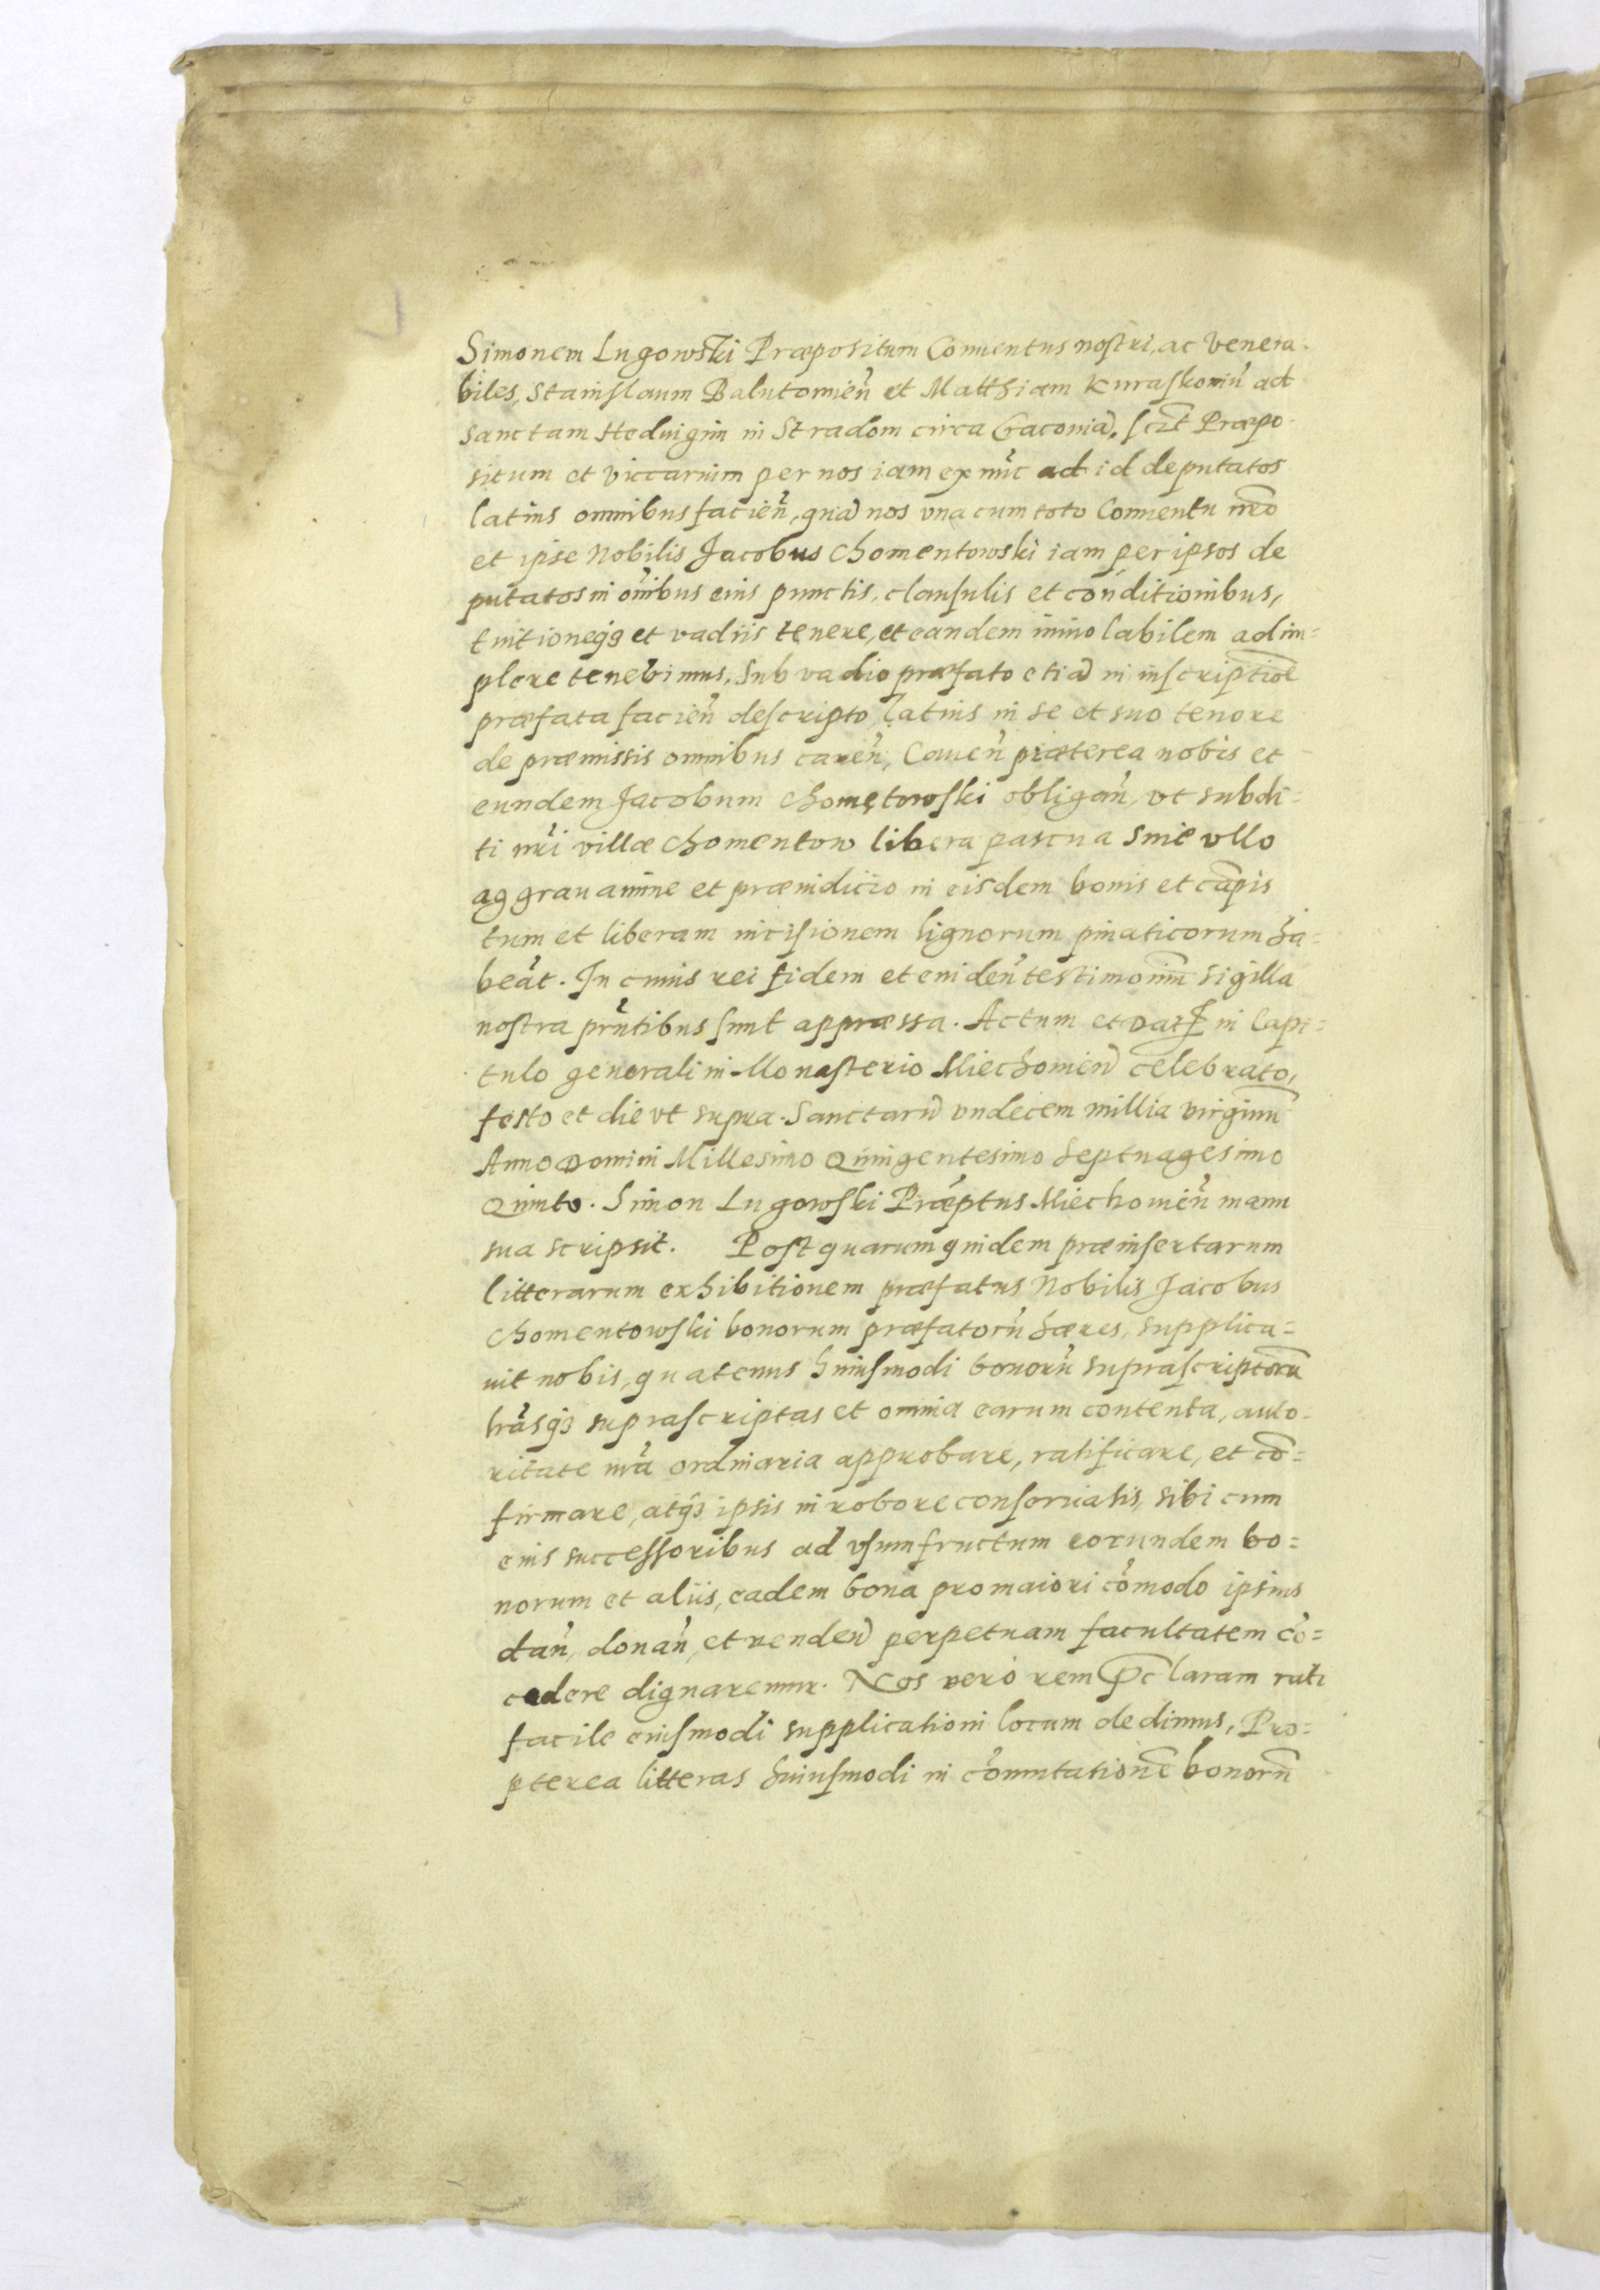 Simonem Lugowski Præpositum Conuentus nostri, ac Venera-
biles, Stanislaum Balutowien̄ et Matthiam Kuraskouin̄ ad
sanctam Heduigim in Stradom circa Cracouiā, scīt Præpo-
situm et viccarium per nos iam ex nūc ad id deputatos
latius omnibus facien̄, quā nos vna cum toto Conuentu nr̄o
et ipse Nobilis Jacobus Chomentowski iam per ipsos de
putatos in ōnibus eius punctis, clausulis et conditionibus,
tuitioneqȝ et vadiis tenere, et eandem inuiolabilem adim=
plere tenebimus, sub vadio præfato etiā in inscriptiōe
præfata facien̄ descripto, latius in se et suo tenore
de præmissis omnibus caren̄, Cauen̄ præterea nobis et
eundem Jacobum Chomętowski obligan̄, vt subdi=
ti nr̄i villæ Chomentow libera pascua sine vllo
aggrauamine et præiudicio in eisdem bonis et cāpis
tum et liberam incisionem lignorum pinaticorum ha=
beāt. In cuius rei fidem et euiden̄ testimoniū sigilla
nostra prn̄tibus sunt appræssa. Actum et Dat in Capi=
tulo generali in Monasterio Miechouien̄ celebrato,
festo et die vt supra. Sanctarū vndecem millia virginū
Anno Domini Millesimo Quingentesimo Septuagesimo
Quinto. Simon Lugowski Præptus Miechouien̄ manu
sua scripsit. Post quarum quidem præinsertarum
litterarum exhibitionem præfatus Nobilis Jacobus
Chomentowski bonorum præfatorū hæres, supplica=
uit nobis, quatenus huiusmodi bonorū suprascriptorū
lr̄asqȝ suprascriptas et omnia earum contenta, auto-
ritate nr̄a ordinaria approbare, ratificare, et cō=
firmare, atqȝ ipsis in robore conseruatis, sibi cum
eius successoribus ad vsumfructum eorundem bo=
norum et aliis, eadem bona pro maiori cōmodo ipsius
dan̄, donan̄, et venden̄ perpetuam facultatem cō=
cedere dignaremur. Nos vero rem p̄claram rati
facile eiusmodi supplicationi locum dedimus, Pro=
pterea litteras huiusmodi in cōmutationē bonorū